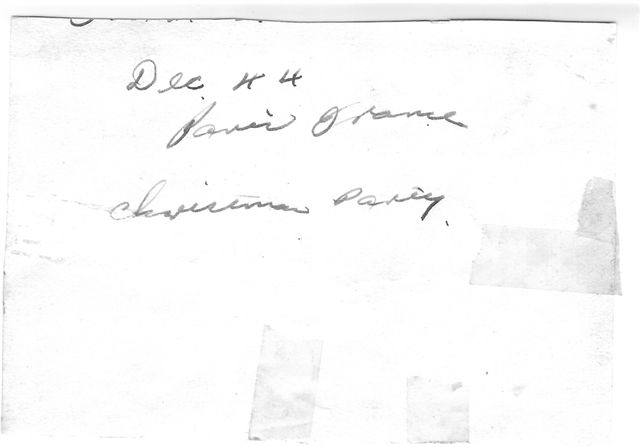 Dec 44
Paris France
Christmas Party.